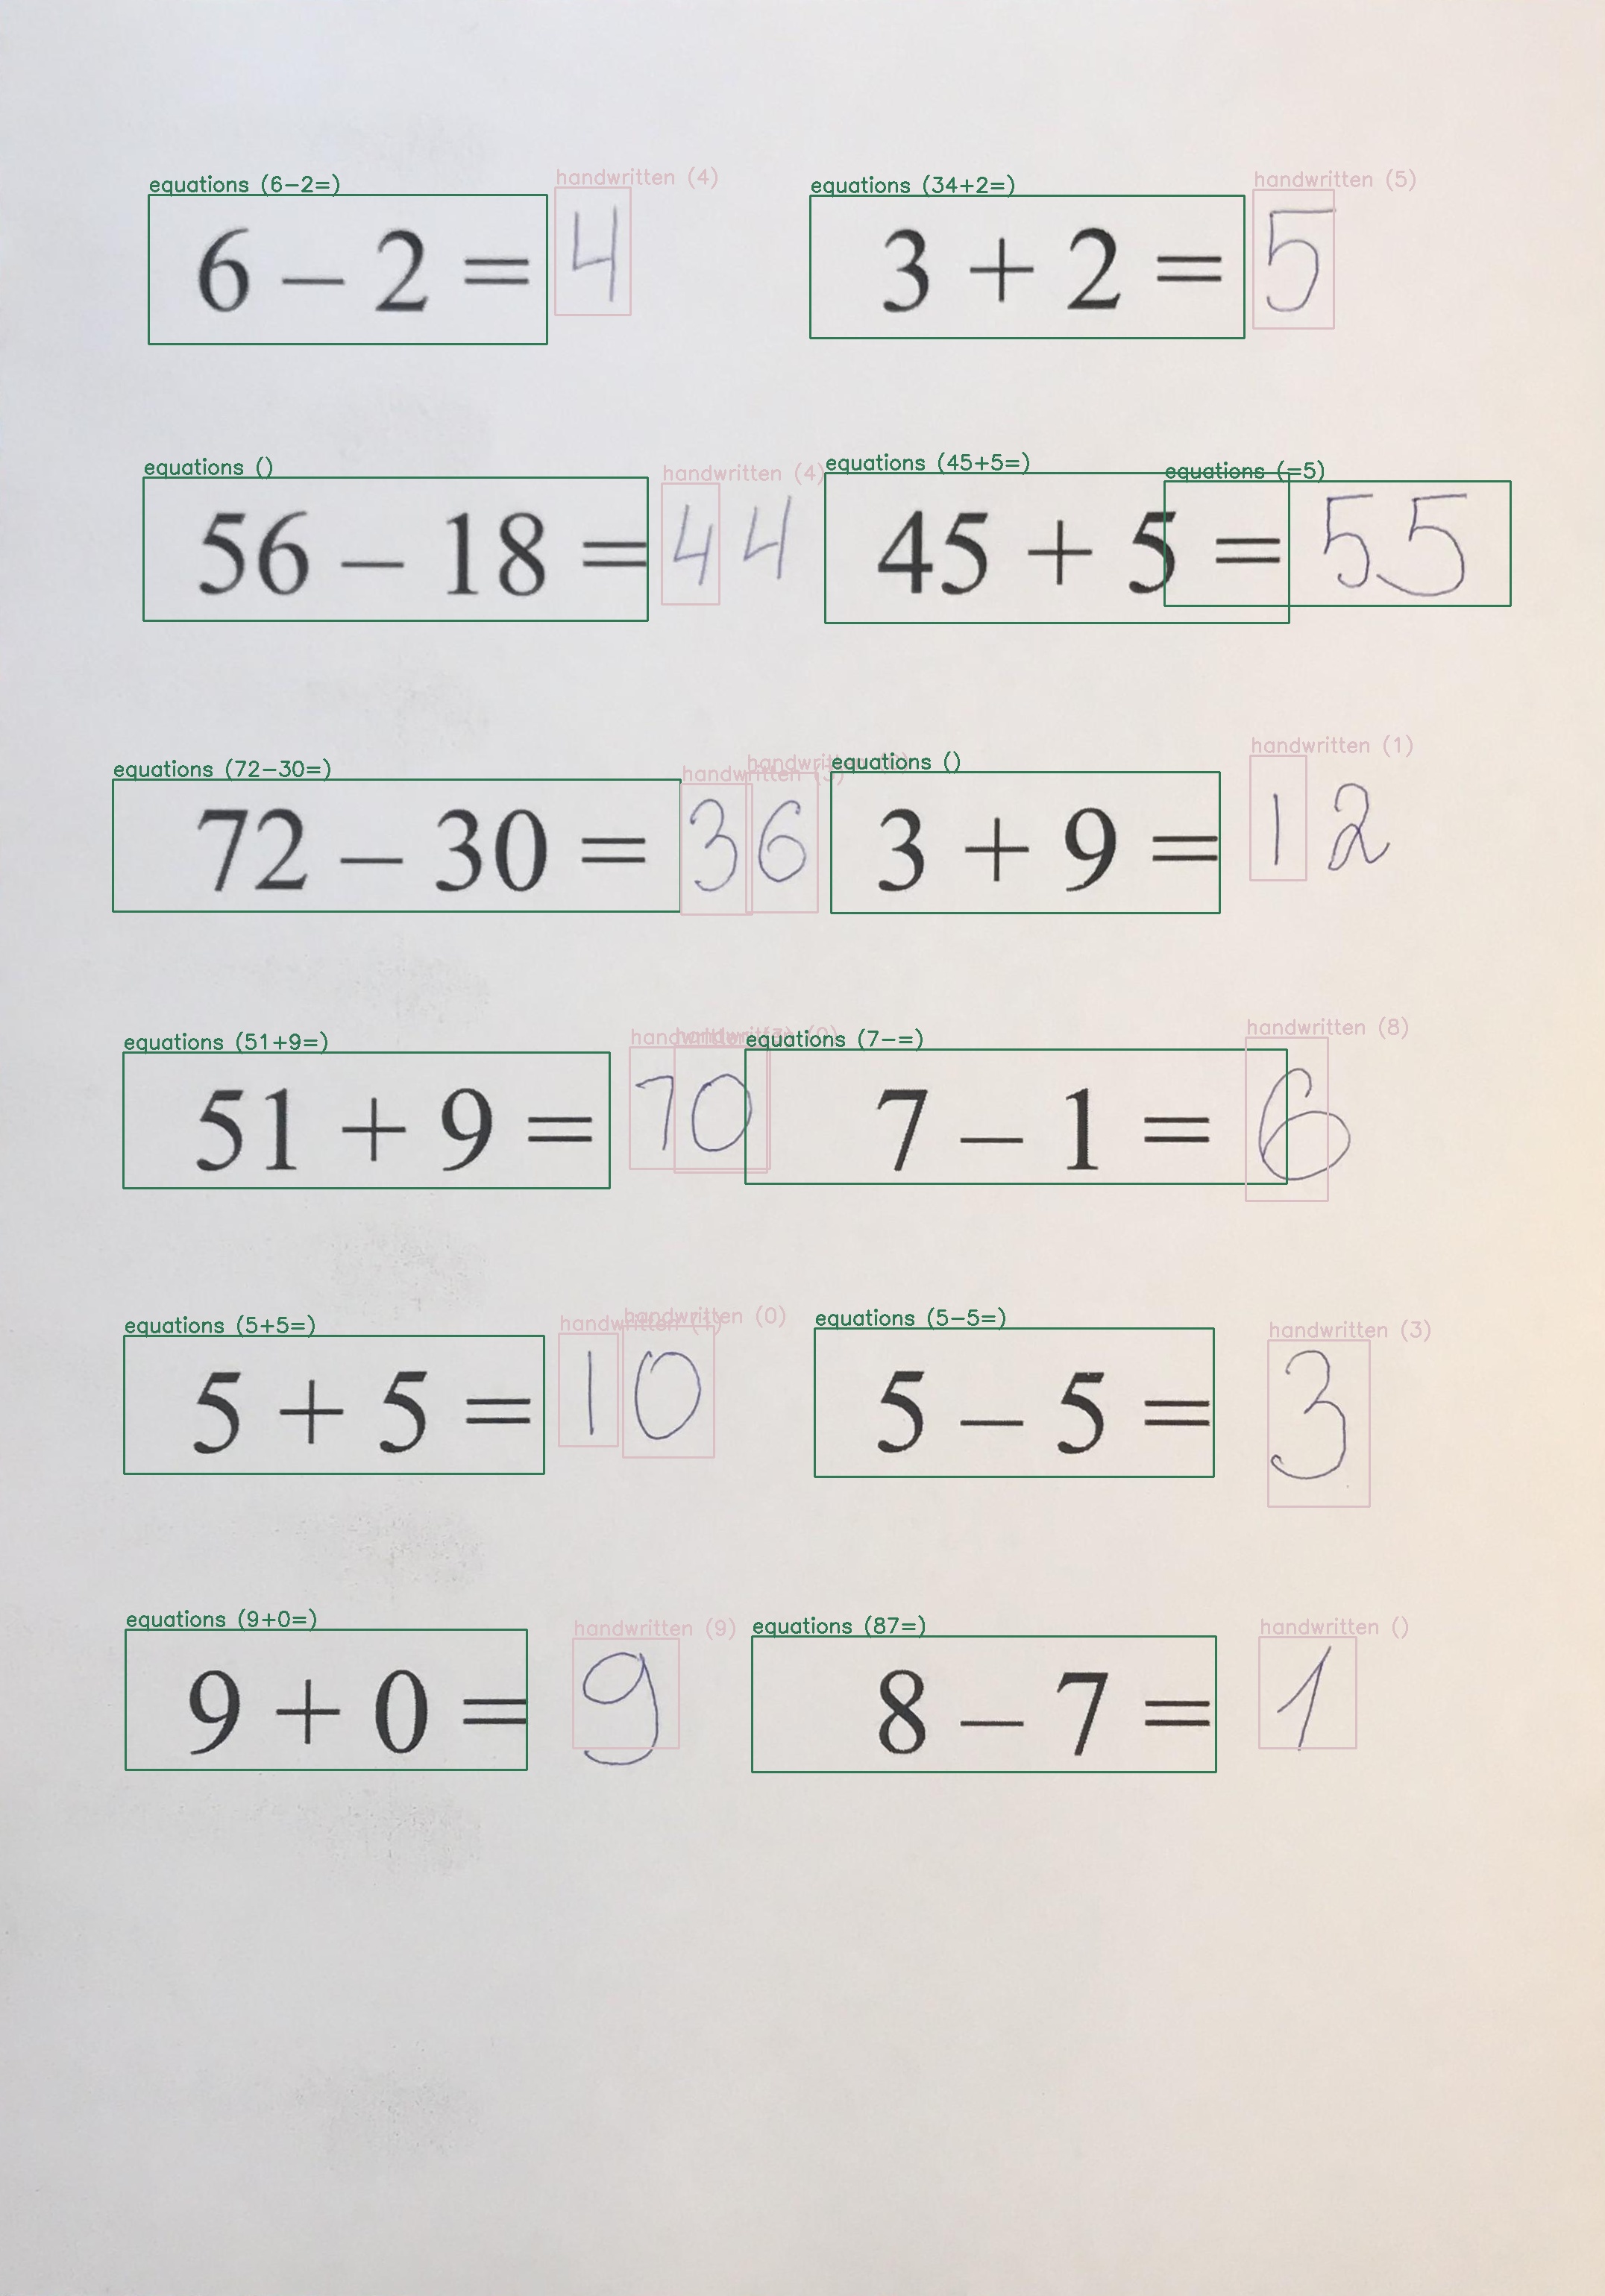 equations (6-2=) handwritten (4) equations (34+2=) handwritten (5)
6 – 2 = 4 3 + 2 = 5
equations () handwritten (4) equations (45+5=) equations (=5)
56 – 18 = 44 45 + 5 = 55
equations (72-30=) handwritten handwritten equations () handwritten (1)
72 – 30 = 36 3 + 9 = 12
equations (51+9=) handwritten equations (7-=) handwritten (8)
51 + 9 = 70 7 – 1 = 6
equations (5+5=) handwritten handwritten (0) equations (5-5=) handwritten (3)
5 + 5 = 10 5 – 5 = 3
equations (9+0=) handwritten (9) equations (87=) handwritten ()
9 + 0 = 9 8 – 7 = 1